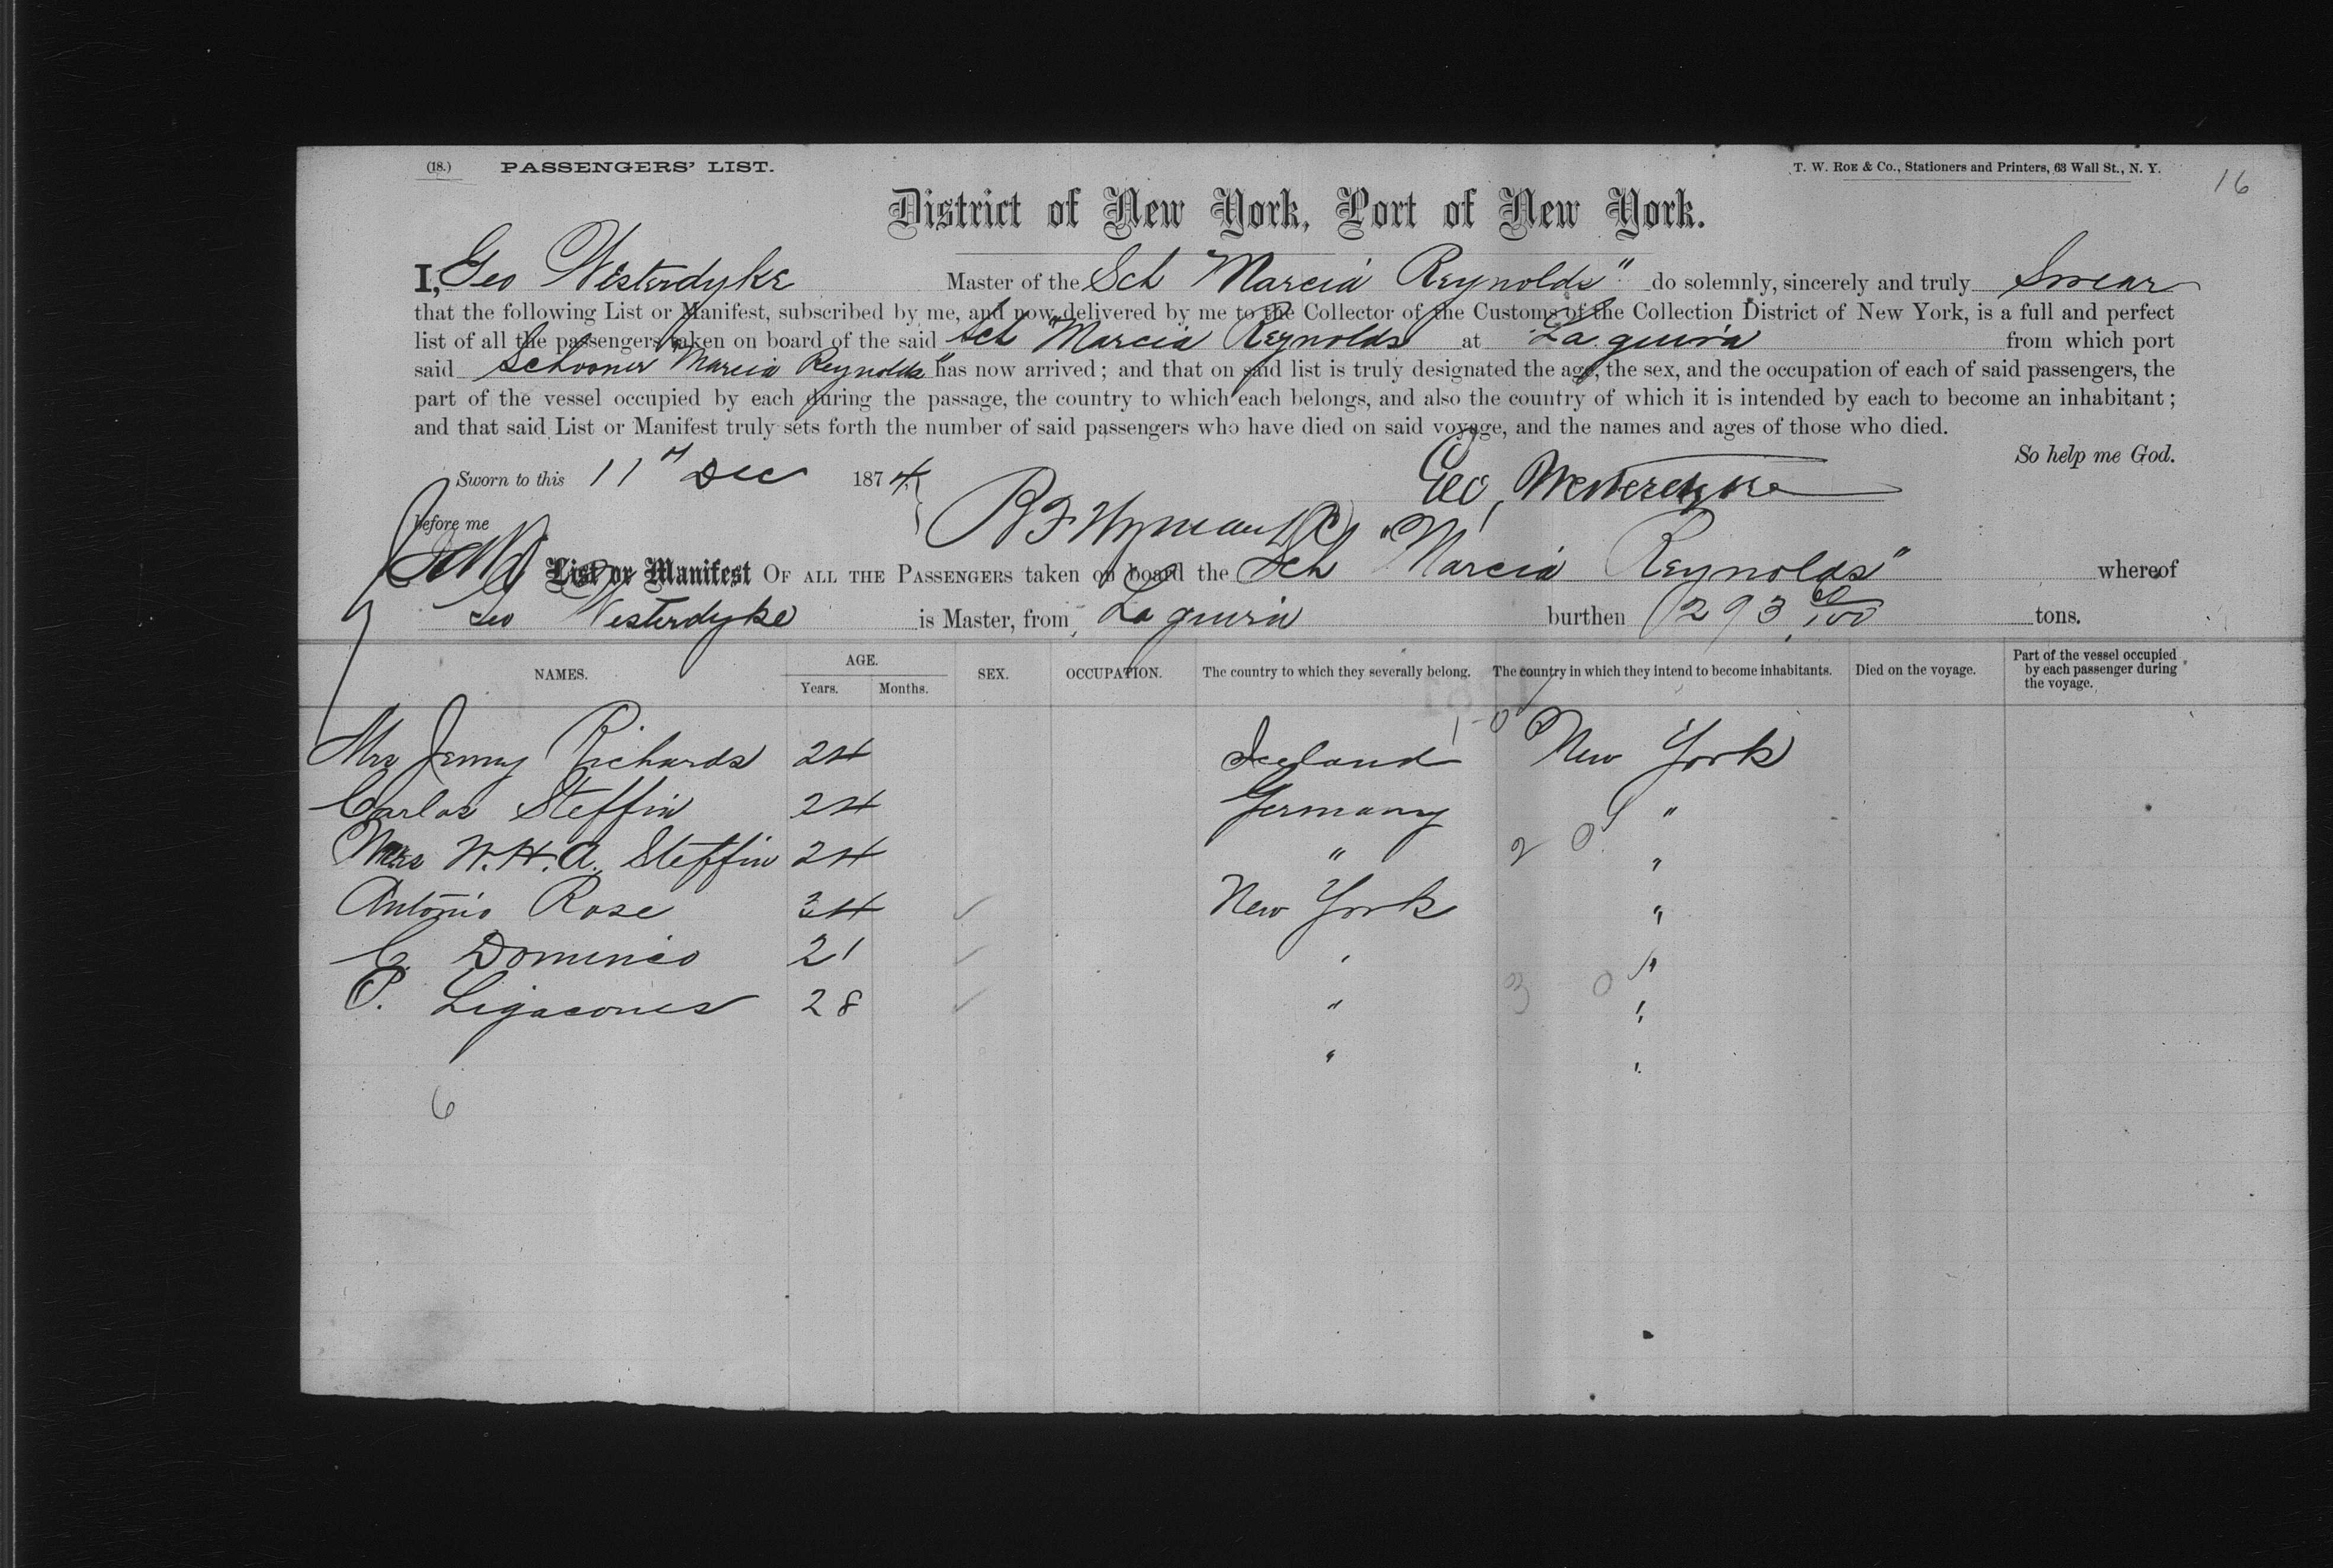 (18.) PASSENGERS' LIST. T. W. ROE & Co., Stationers and Printers, 63 Wall St., N. Y. 16
District of New York, Port of New York.
I, Geo Westerdyke Master of the Sch "Marcia Reynolds" do solemnly, sincerely and truly Swear
that the following List or Manifest, subscribed by me, and now delivered by me to the Collector of the Customs of the Collection District of New York, is a full and perfect
list of all the passengers taken on board of the said Sch "Marcia Reynolds at La guira from which port
said Schooner "Marcia Reynolds" has now arrived; and that on said list is truly designated the age, the sex, and the occupation of each of said passengers, the
part of the vessel occupied by each during the passage, the country to which each belongs, and also the country of which it is intended by each to become an inhabitant;
and that said List or Manifest truly sets forth the number of said passengers who have died on said voyage, and the names and ages of those who died.
So help me God.
Sworn to this 11th Dec 1874 Geo, Westerdyke
before me
List or Manifest OF ALL THE PASSENGERS taken on board the Sch "Marcia Reynolds" whereof
Geo Westerdyke is Master, from La guira burthen 293 60/100 tons.
NAMES. AGE. Years. Months. SEX. OCCUPATION. The country to which they severally belong. The country in which they intend to become inhabitants. Died on the voyage. Part of the vessel occupied by each passenger during the voyage.
Mrs Jenny Richards 24 1-0 New York
Carlos Steffin 24 Germany "
Mrs W. H. A. Steffin 24 " 2 0 "
Antonio Rose 34 ✓ New York "
Dominico 21 ✓ " "
P. 28 ✓ " 3 0 "
" "
6